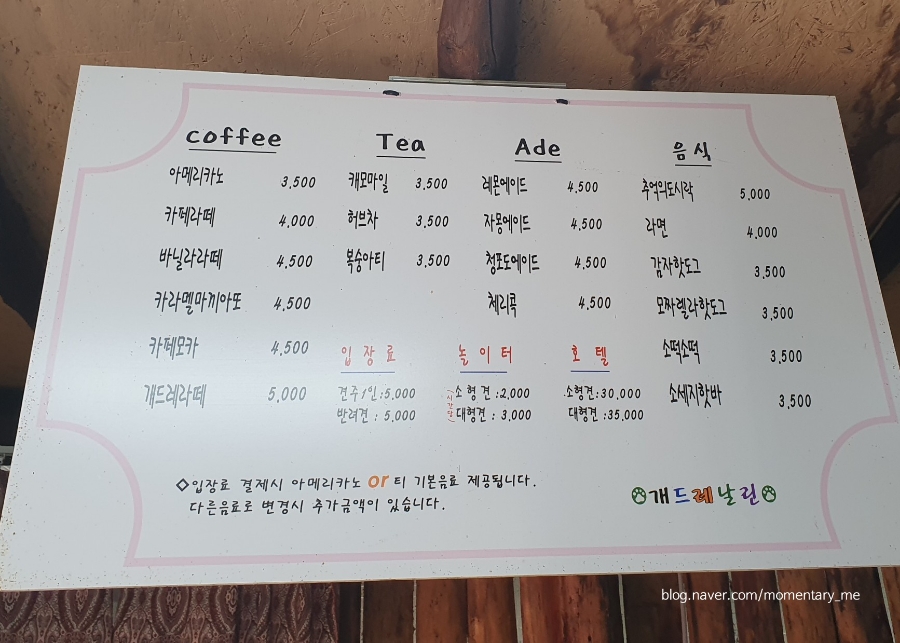 coffee
아메리카노 3,500
카페라떼 4,000
바닐라라떼 4,500
카라멜마끼아또 4,500
카페모카 4,500
개드레라떼 5,000
Tea
캐모마일 3,500
허브차 3,500
복숭아티 3,500
Ade
레몬에이드 4,500
자몽에이드 4,500
청포도에이드 4,500
체리콕 4,500
음식
추억의도시락 5,000
라면 4,000
감자핫도그 3,500
모짜렐라핫도그 3,500
소떡소떡 3,500
소세지핫바 3,500
입장료
견주1인:5,000
반려견 : 5,000
놀이터
시간당
소형견 :2,000
대형견 : 3,000
호텔
소형견:30,000
대형견:35,000
◇입장료 결제시 아메리카노 or 티 기본음료 제공됩니다.
다른음료로 변경시 추가금액이 있습니다.
개드레날린
blog.naver.com/momentary_me